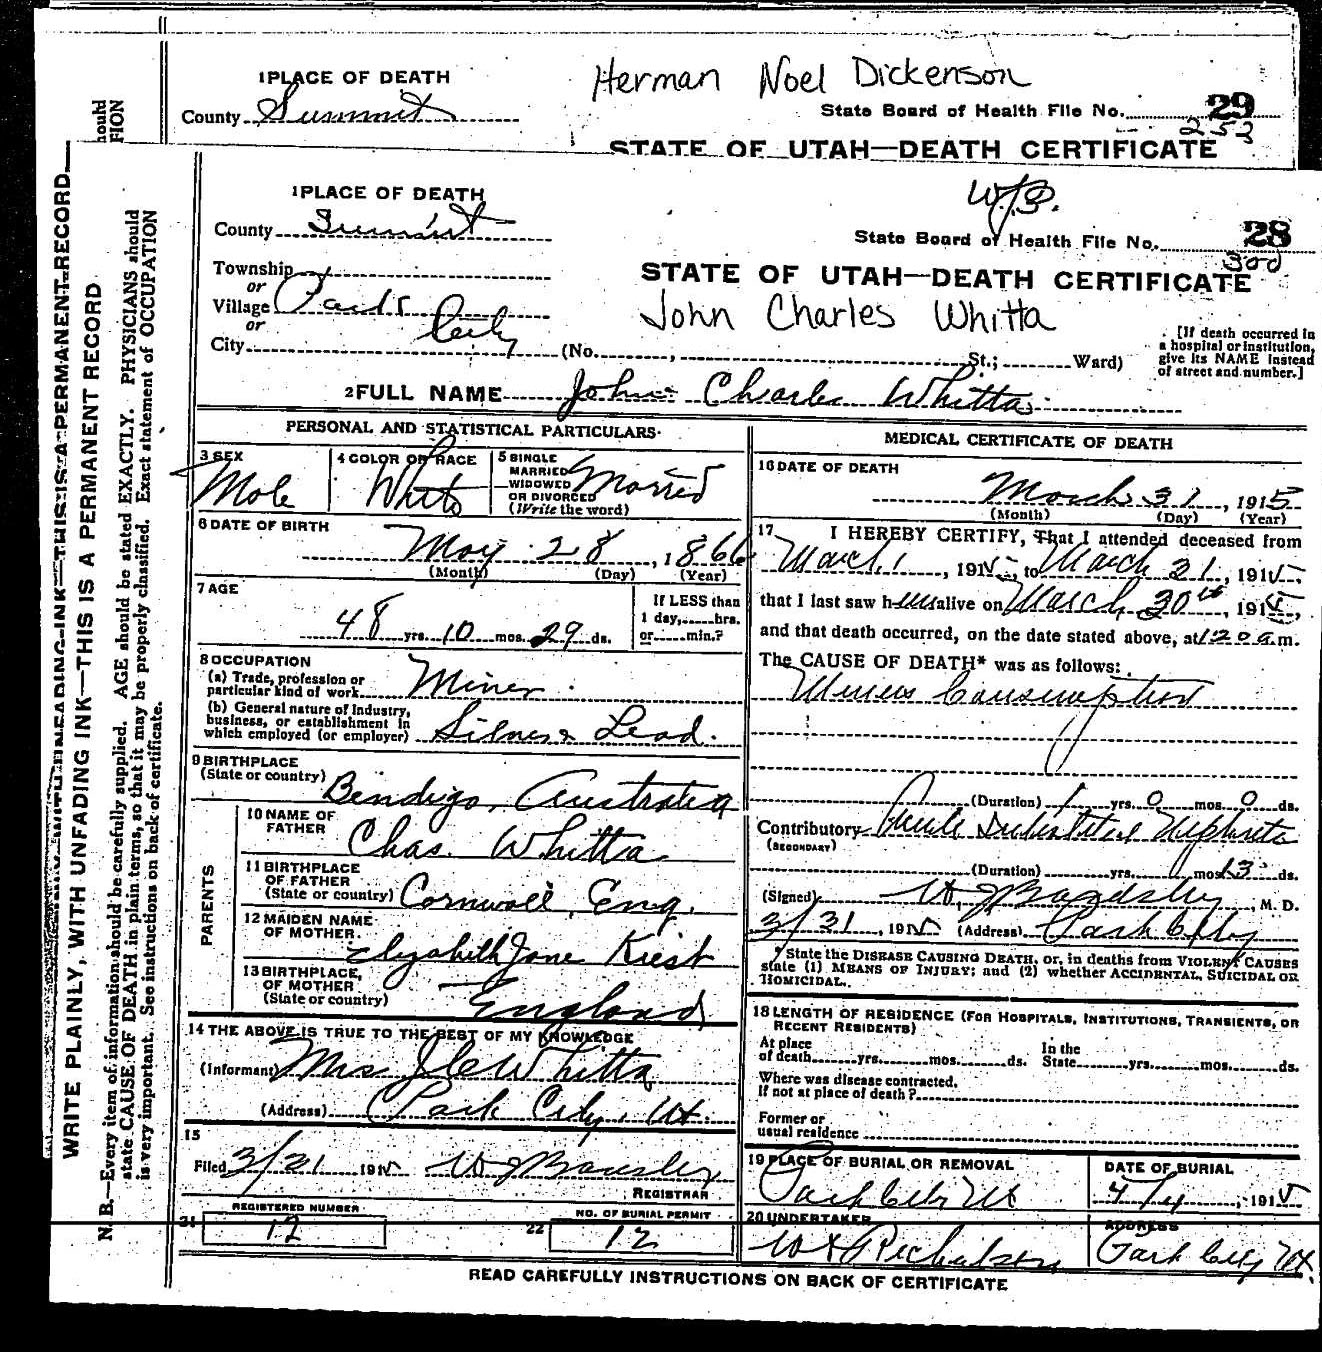 1 PLACE OF DEATH
Herman Noel Dickenson
County Summit
State Board of Health File No. 29
253
STATE OF UTAH—DEATH CERTIFICATE
1 PLACE OF DEATH
County Summit
State Board of Health File No. 28
300
Township
or
Village Park
or
City City
STATE OF UTAH—DEATH CERTIFICATE
John Charles Whitta
(No. , St.; Ward)
[If death occurred in
a hospital or institution,
give its NAME instead
of street and number.]
2 FULL NAME John Charles Whitta
PERSONAL AND STATISTICAL PARTICULARS
3 SEX
Male
4 COLOR OR RACE
White
5 SINGLE
MARRIED
WIDOWED
OR DIVORCED
(Write the word)
Married
6 DATE OF BIRTH
May 28, 1866
(Month) (Day) (Year)
7 AGE
48 yrs. 10 mos. 29 ds.
If LESS than
1 day, hrs.
or min.?
8 OCCUPATION
(a) Trade, profession or
particular kind of work Miner
(b) General nature of Industry,
business, or establishment in
which employed (or employer) Silver & Lead.
9 BIRTHPLACE
(State or country) Bendigo, Australia
PARENTS
10 NAME OF
FATHER Chas. Whitta
11 BIRTHPLACE
OF FATHER
(State or country) Cornwall, Eng.
12 MAIDEN NAME
OF MOTHER Elizabeth Jane
13 BIRTHPLACE,
OF MOTHER
(State or country) England
14 THE ABOVE IS TRUE TO THE BEST OF MY KNOWLEDGE
(Informant) Mrs J C Whitta
(Address) Park City, Ut.
15
Filed 3/31 1915
REGISTRAR
REGISTERED NUMBER
21 12
NO. OF BURIAL PERMIT
22 12
MEDICAL CERTIFICATE OF DEATH
16 DATE OF DEATH
March 31, 1915
(Month) (Day) (Year)
17 I HEREBY CERTIFY, That I attended deceased from
March 1, 1915, to March 31, 1915,
that I last saw him alive on March 30th, 1915,
and that death occurred, on the date stated above, at 120 a.m.
The CAUSE OF DEATH* was as follows:
Miners Consumption
(Duration) 1 yrs. 0 mos. 0 ds.
Contributory Acute Interstitial Nephritis
(SECONDARY)
(Duration) yrs. mos. 13 ds.
(Signed) , M. D.
3/31, 1915 (Address) Park City
*State the DISEASE CAUSING DEATH, or, in deaths from VIOLENT CAUSES
state (1) MEANS OF INJURY; and (2) whether ACCIDENTAL, SUICIDAL OR
HOMICIDAL.
18 LENGTH OF RESIDENCE (FOR HOSPITALS, INSTITUTIONS, TRANSIENTS, OR
RECENT RESIDENTS)
At place
of death yrs. mos. ds.
In the
State yrs. mos. ds.
Where was disease contracted,
If not at place of death?
Former or
usual residence
19 PLACE OF BURIAL OR REMOVAL
Park City Ut
DATE OF BURIAL
4/4, 1915
20 UNDERTAKER
ADDRESS
Park City Ut.
READ CAREFULLY INSTRUCTIONS ON BACK OF CERTIFICATE
WRITE PLAINLY, WITH UNFADING INK—THIS IS A PERMANENT RECORD
N. B.—Every item of information should be carefully supplied. AGE should be stated EXACTLY. PHYSICIANS should
state CAUSE OF DEATH in plain terms, so that it may be properly classified. Exact statement of OCCUPATION
is very important. See instructions on back of certificate.